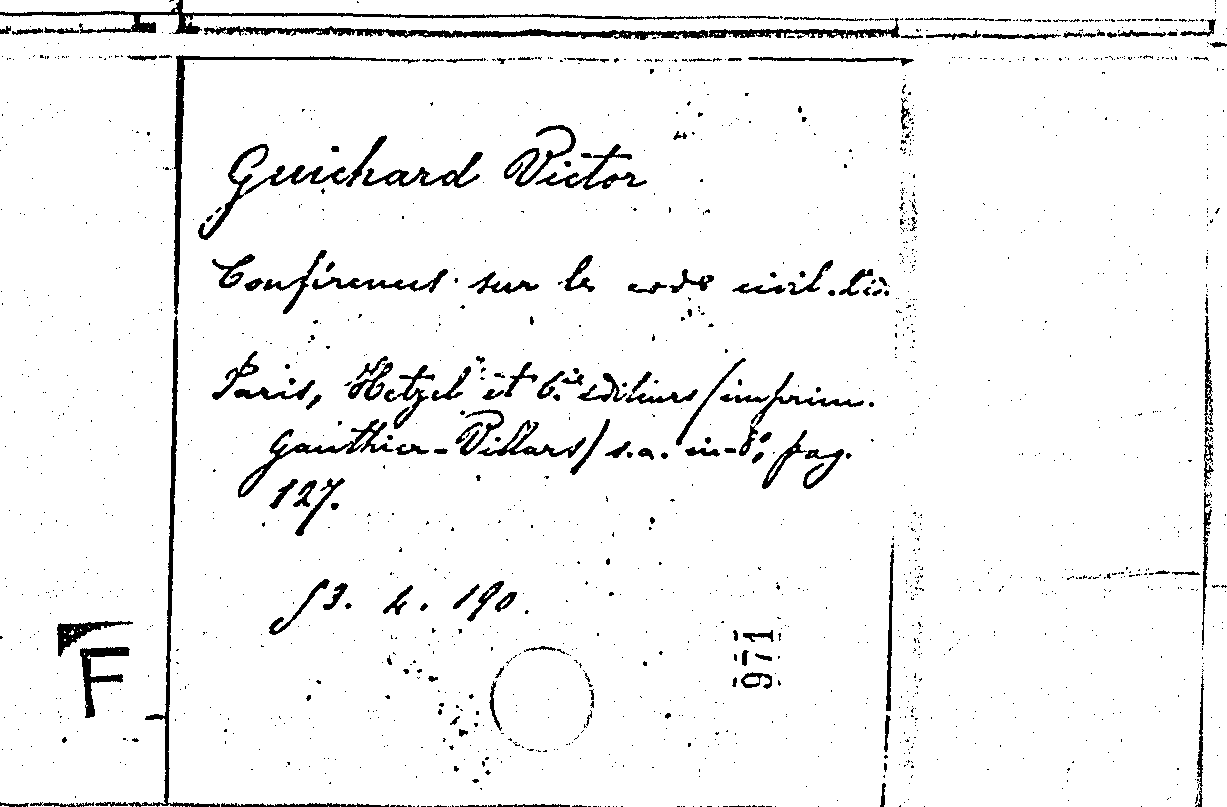 Guichard Victor
Conférences sur le code civil.
Paris, Hetzel et Cie éditeurs (imprim.
Gauthier-Villars) s.a. in-8°, pag.
127.
53. 4. 190.
971
F